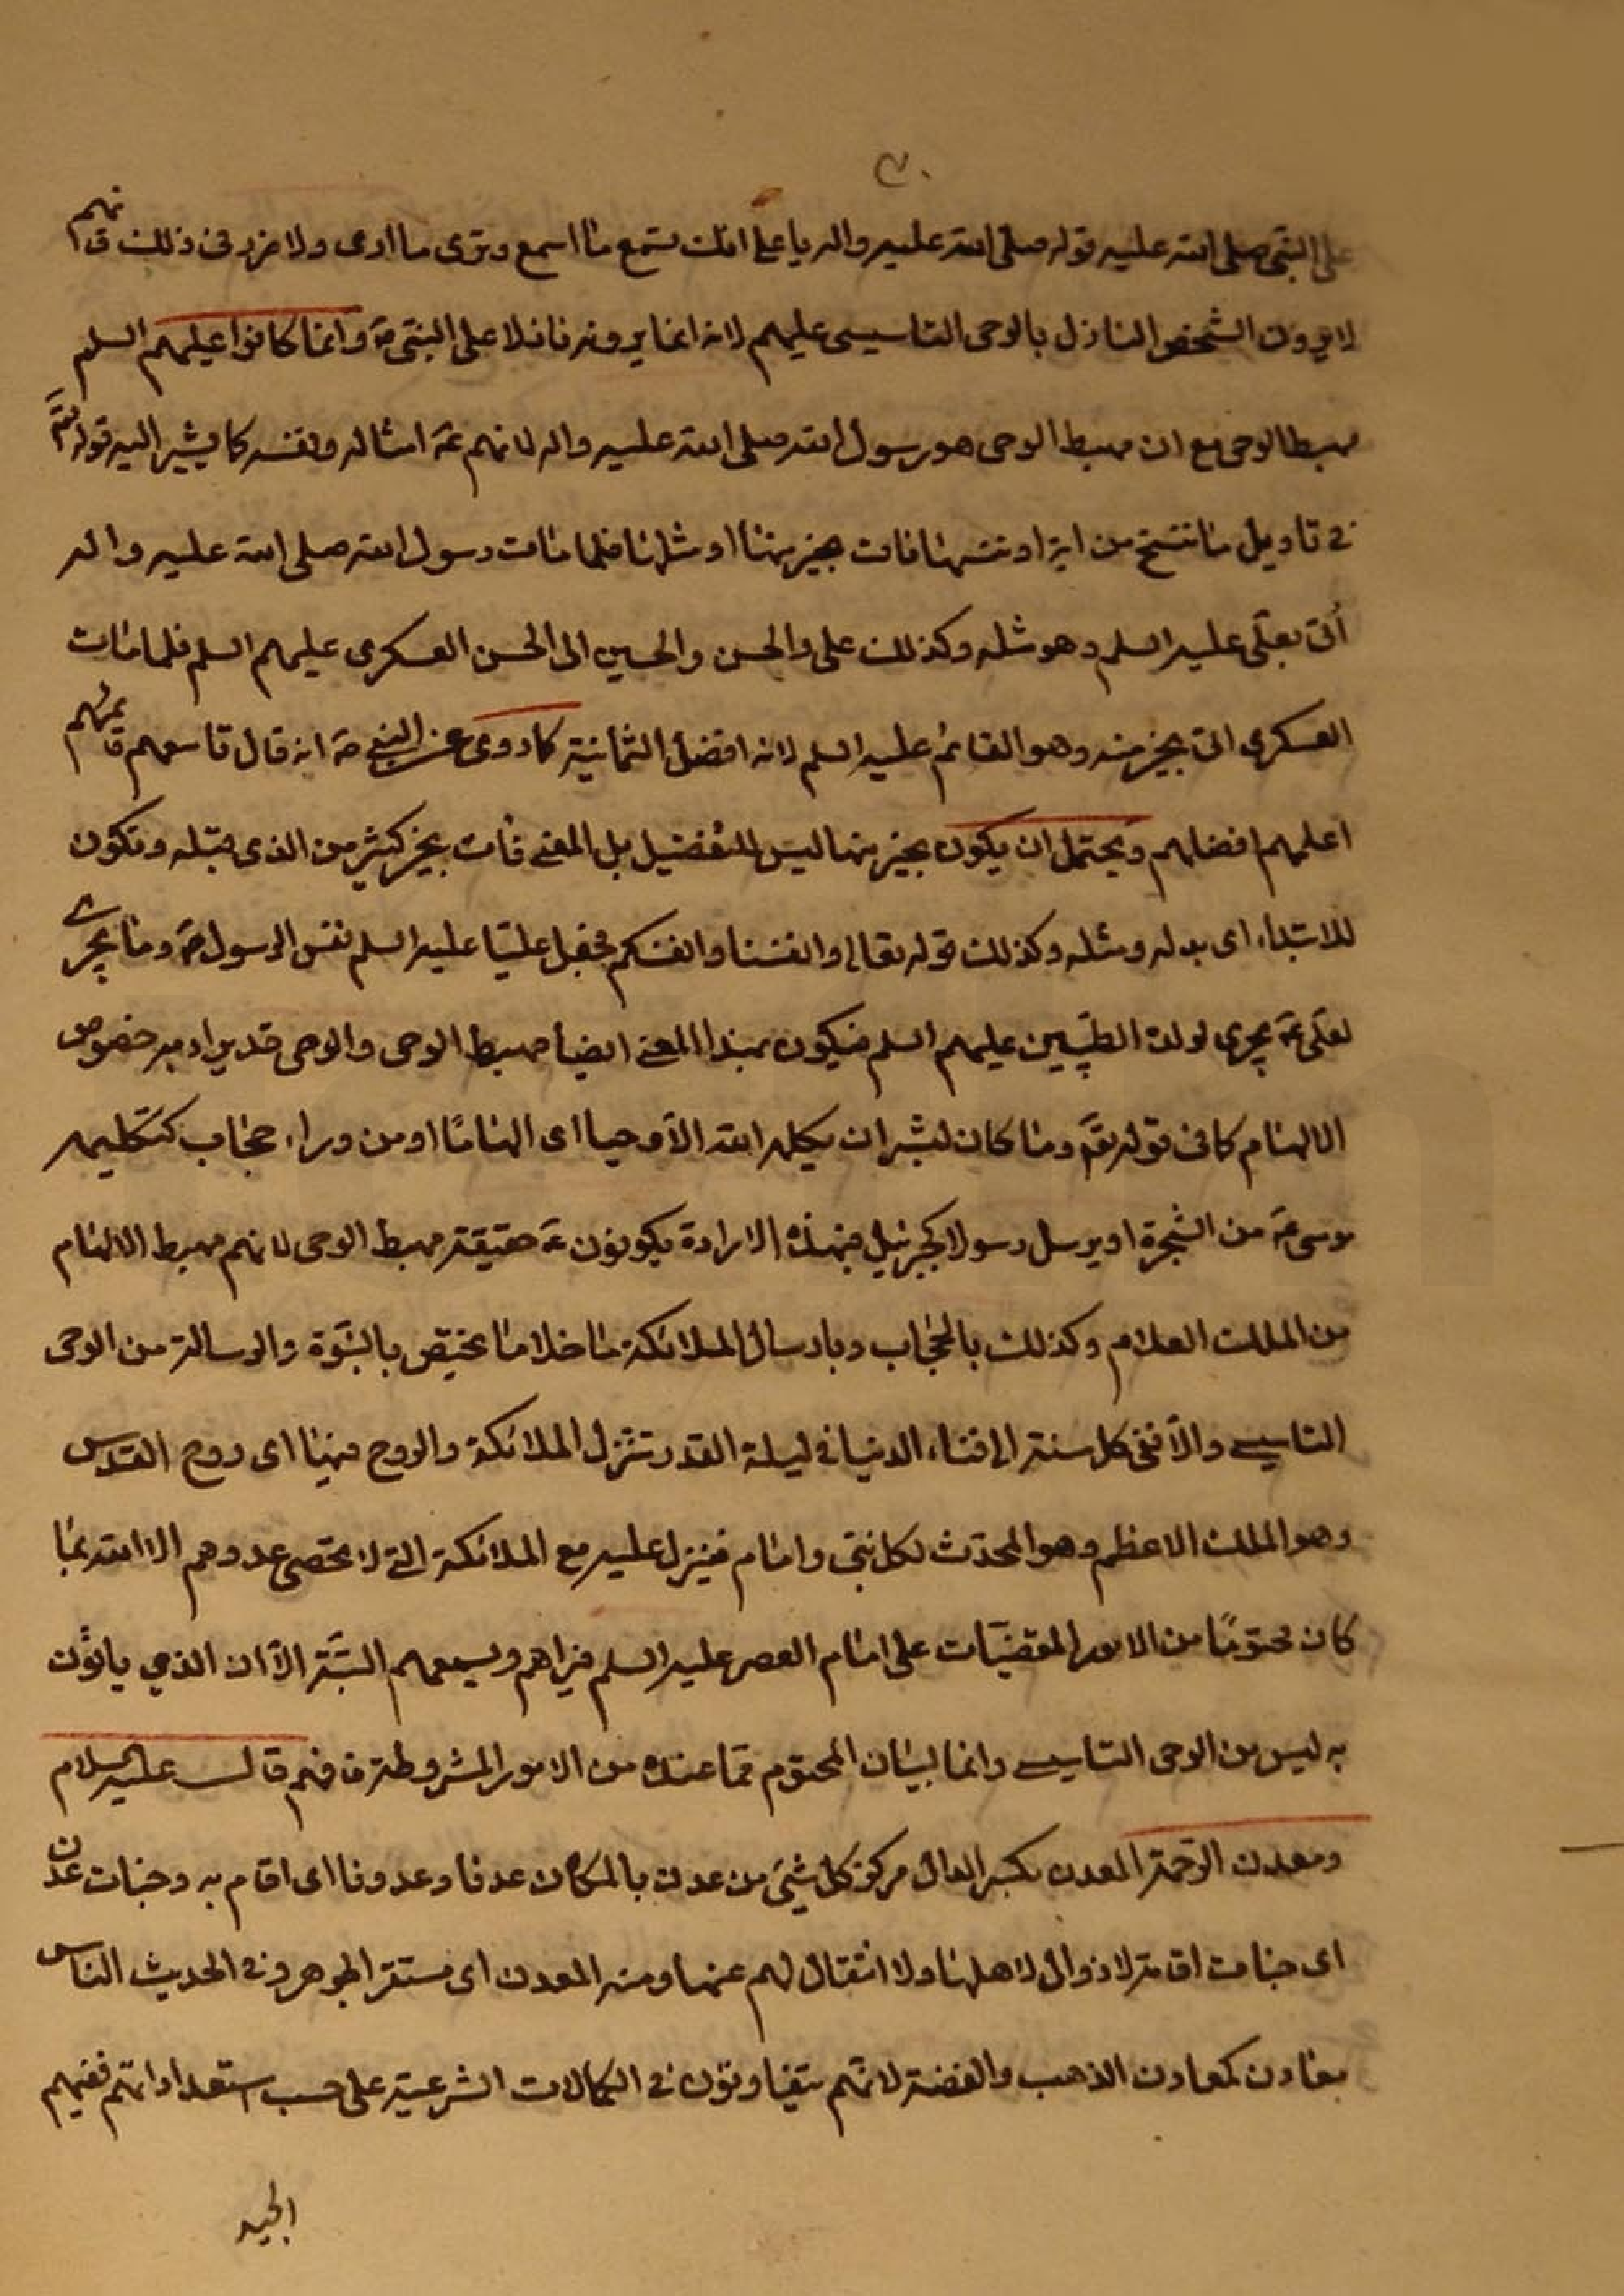 على النبى صلى الله عليه قوله صلى الله عليه واله يا على انك تسمع ما اسمع وترى ما ارى ولا يرد فى ذلك فانهم
لا يرون الشخص النازل بالوحى التاسيسى عليهم لانه انما يرونه نازلا على النبى ص وانما كانوا عليهم السلم
مهبط الوحى مع ان مهبط الوحى هو رسول الله صلى الله عليه واله لانهم ع امثاله ونفسه كما يشير اليه قوله تع
فى تاويل ما ننسخ من اية او ننسها نات بخير منها او مثلها فلما مات رسول الله صلى الله عليه واله
اتى بعلى عليه السلم وهو مثله وكذلك على والحسن والحسين الى الحسن العسكرى عليهم السلم فلما مات
العسكرى اتى بخير منه وهو القائم عليه السلم لانه افضل الثمانية كما روى عن النبى ص انه قال تاسعهم قائمهم
اعلمهم افضلهم ويحتمل ان يكون بخير منها ليس للتفضيل بل المعنى نأت بخير كثير من الذى قبله وتكون
للابتداء اى بدله ومثله وكذلك قوله تعالى وانفسنا وانفسكم فجعل عليّا عليه السلم نفس الرسول ص وما يجرى
لعلى ع يجرى لولده الطيّبين عليهم السلم فيكون بهذا المعنى ايضا مهبط الوحى والوحى قد يراد به خصوص
الالهام كما فى قوله تع وما كان لبشر ان يكلمه الله الّا وحيا اى الهامًا او من وراء حجاب كتكليمه
موسى ع من الشجرة او يرسل رسولا كجبرئيل فبهذه الارادة يكونون ع حقيقة مهبط الوحى لانهم مهبط الالهام
من الملك العلام وكذلك بالحجاب وبارسال الملائكة ما خلا ما يختص بالنبوّة والرسالة من الوحى
التاسيسى والّا ففى كل سنة الى فناء الدنيا فى ليلة القدر تتنزل الملائكة والروح فيها اى روح القدس
وهو الملك الاعظم وهو المحدّث لكل نبى وامام فينزل عليه مع الملائكة التى لا يحصى عددهم الا الله بما
كان محتومًا من الامور المقضيّات على امام العصر عليه السلم فيراهم ويسمعهم البتّة الّا ان الذى ياتون
به ليس من الوحى التاسيسى وانما لبيان المحتوم مما عنده من الامور المشروطة فافهم قال عليه السلام
ومعدن الرحمة المعدن بكسر الدال مركز كل شئ من عدن بالمكان عدنا وعدونا اى اقام به وجنات عدن
اى جنات اقامة لا زوال لاهلها ولا انتقال لهم عنها ومنه المعدن اى مستقر الجوهر وفى الحديث الناس
معادن كمعادن الذهب والفضة لانهم يتفاوتون فى الكمالات الشرعية على حسب استعداداتهم ففيهم
الجيد